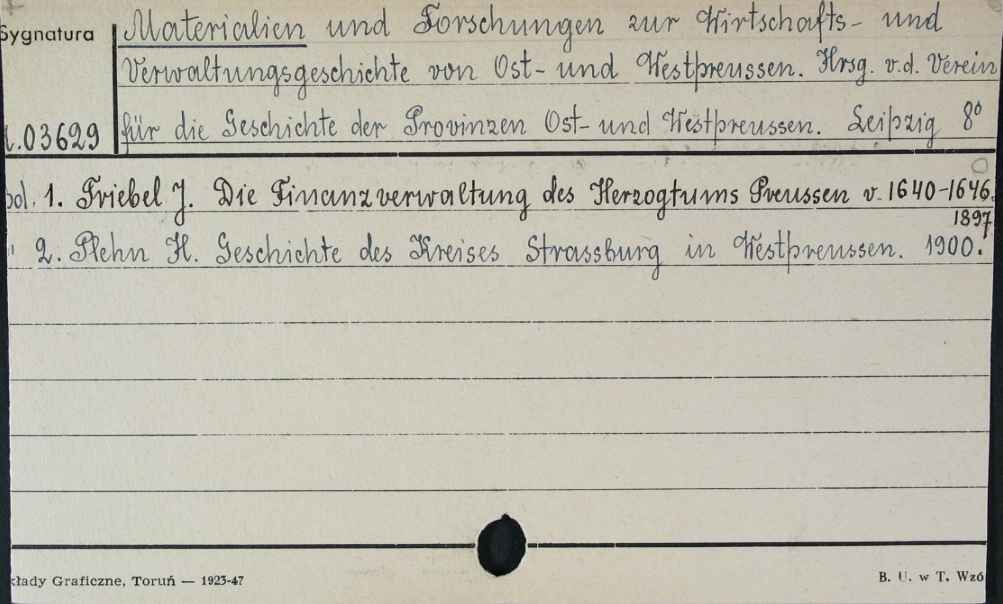 Sygnatura
Materialien und Forschungen zur Wirtschafts- und
Verwaltungsgeschichte von Ost- und Westpreussen. Hrsg. v.d. Verein
.03629 für die Geschichte der Provinzen Ost- und Westpreussen. Leipzig 8°
vol. 1. Friebel J. Die Finanzverwaltung des Herzogtums Preussen v. 1640-1646.
1897.
" 2. Plehn H. Geschichte des Kreises Strassburg in Westpreussen. 1900.
kłady Graficzne, Toruń — 1923-47
B. U. w T. Wzó